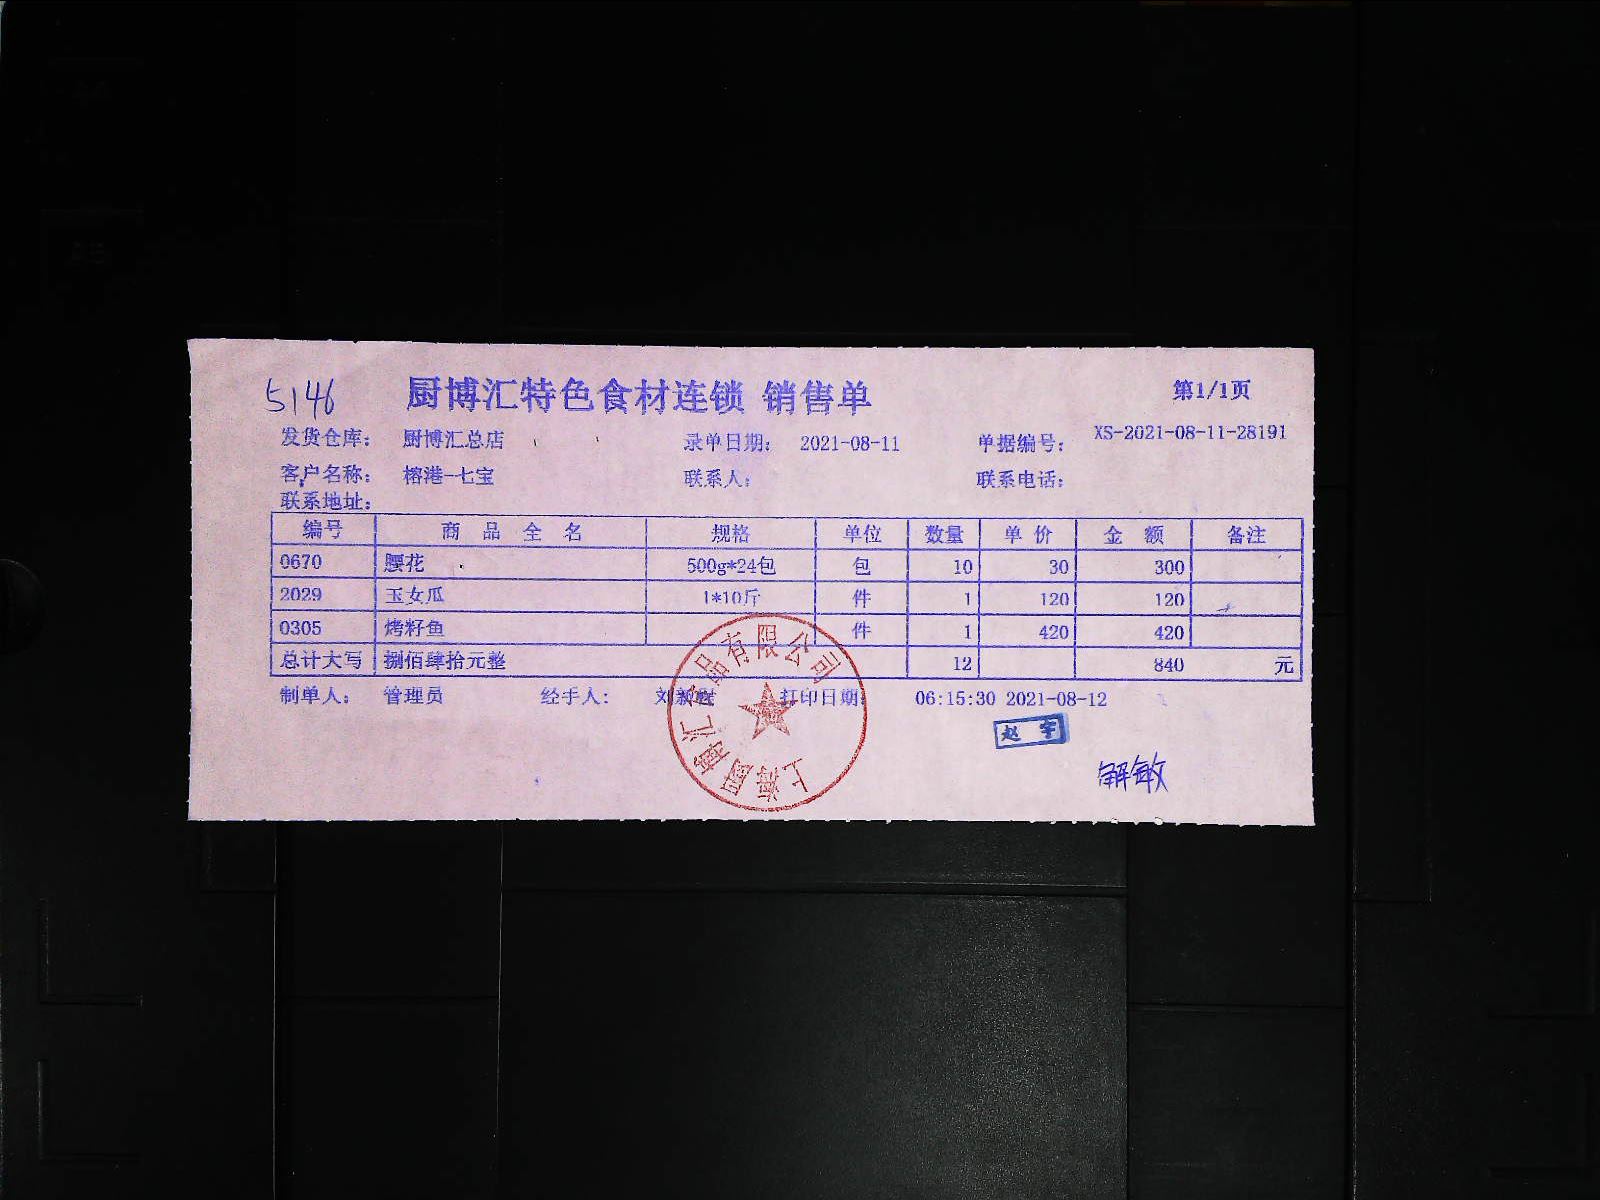 5146 厨博汇特色食材连锁 销售单 第1/1页
发货仓库: 厨博汇总店 录单日期: 2021-08-11 单据编号: XS-2021-08-11-28191
客户名称: 榕港-七宝 联系人: 联系电话:
联系地址:
编号 商 品 全 名 规格 单位 数量 单 价 金 额 备注
0670 腰花 500g*24包 包 10 30 300
2029 玉女瓜 1*10斤 件 1 120 120
0305 烤籽鱼 件 1 420 420
总计大写 捌佰肆拾元整 12 840 元
制单人: 管理员 经手人: 打印日期: 06:15:30 2021-08-12
上海厨博汇食品有限公司
赵 宇
解敏